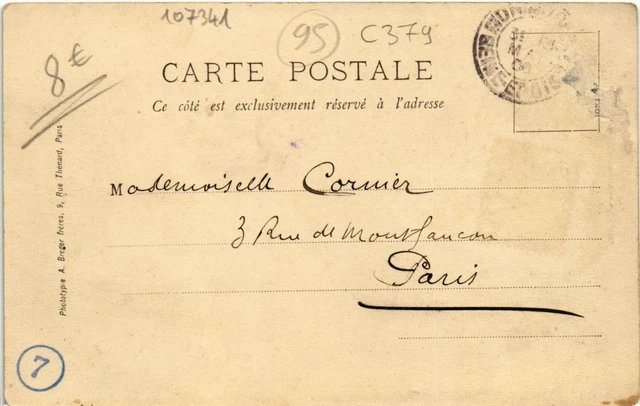 107341
95
C379
8€
CARTE POSTALE
Ce côté est exclusivement réservé à l'adresse
Mademoiselle Cornier
3 Rue de Montfaucon
Paris
Phototypie A. Breger frères, 9, Rue Thénard, Paris
7